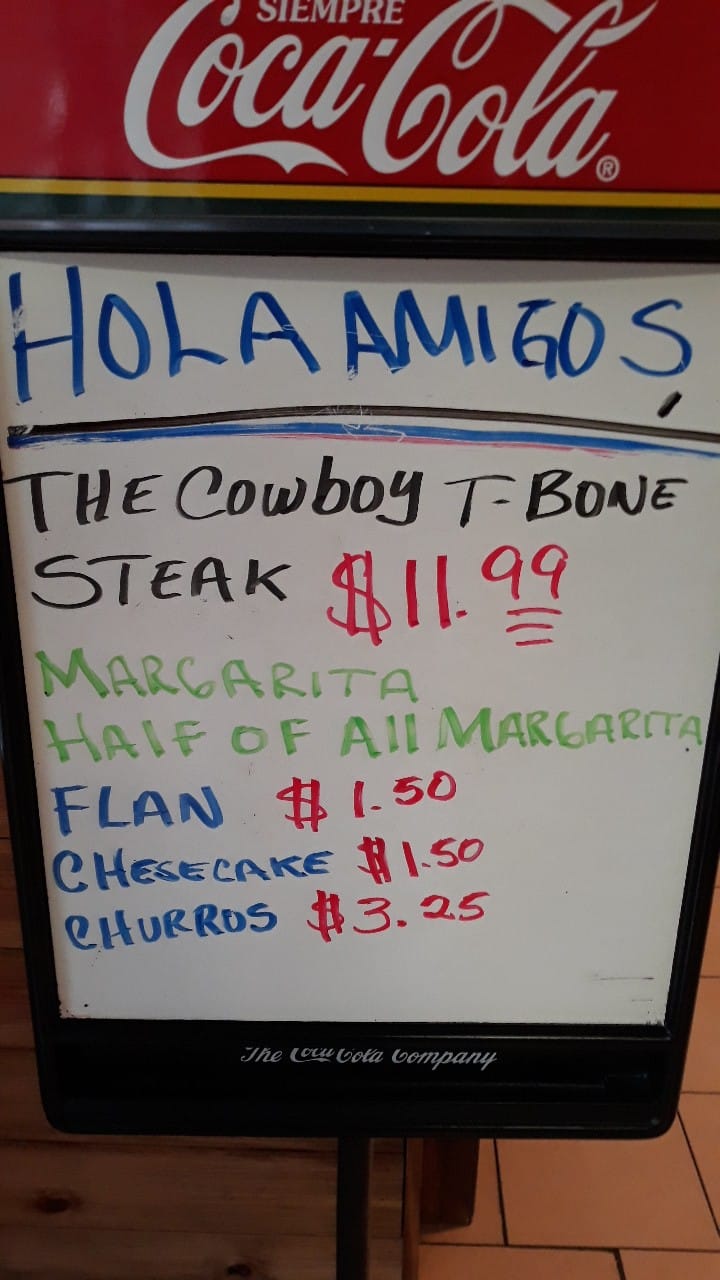 SIEMPRE
Coca-Cola®
HOLA AMIGOS,
THE COWBOY T-BONE
STEAK $11.99
MARGARITA
HALF OF All MARGARITA
FLAN $1.50
CHESECAKE $1.50
CHURROS $3.25
The Coca-Cola Company